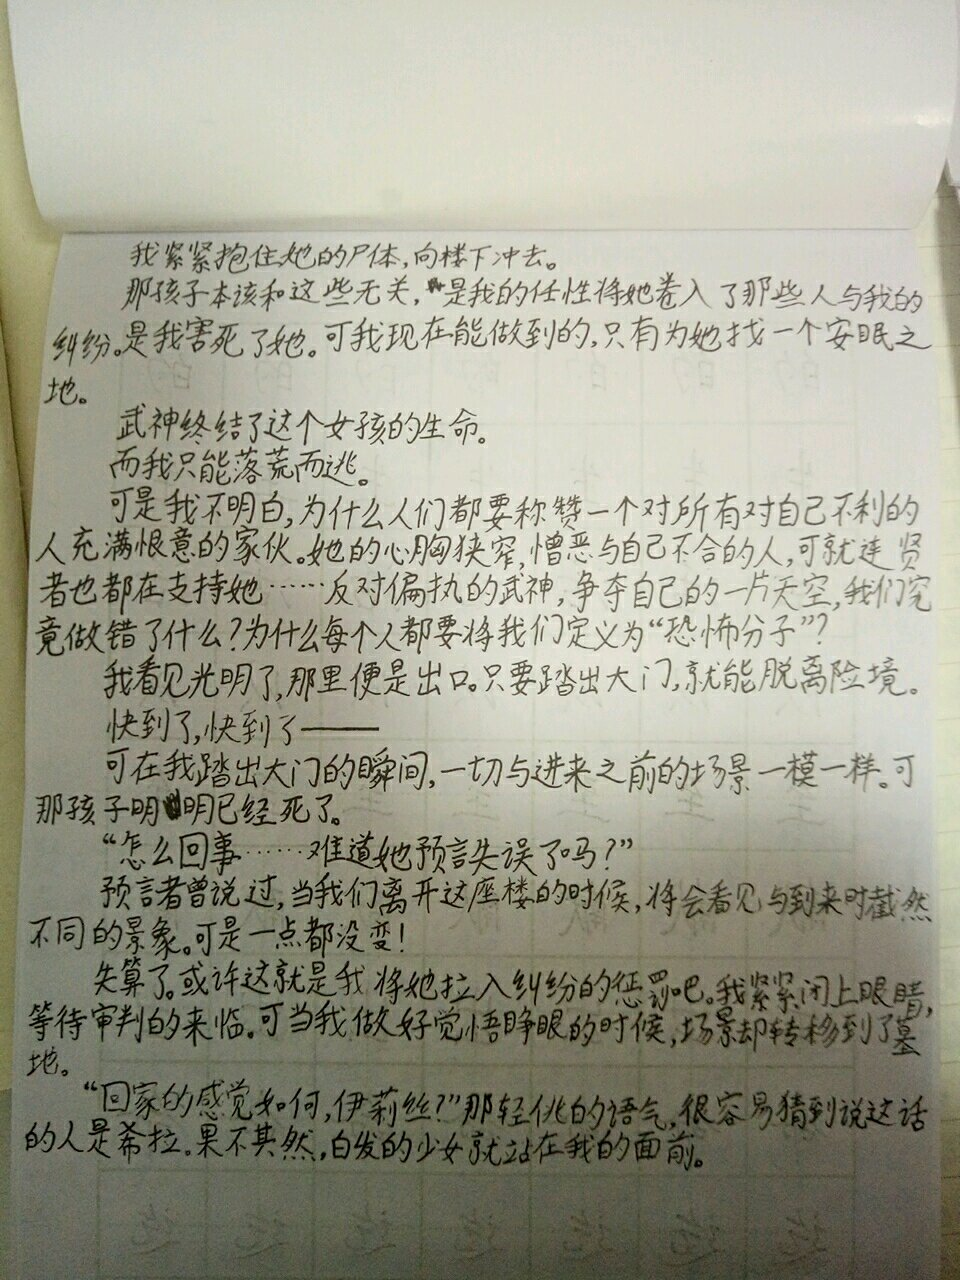 我紧紧抱住她的尸体,向楼下冲去。
那孩子本该和这些无关,是我的任性将她卷入了那些人与我的
纠纷。是我害死了她。可我现在能做到的,只有为她找一个安眠之
地。
武神终结了这个女孩的生命。
而我只能落荒而逃。
可是我不明白,为什么人们都要称赞一个对所有对自己不利的
人充满恨意的家伙。她的心胸狭窄,憎恶与自己不合的人,可就连贤
者也都在支持她……反对偏执的武神,争夺自己的一片天空,我们究
竟做错了什么?为什么每个人都要将我们定义为“恐怖分子”?
我看见光明了,那里便是出口。只要踏出大门,就能脱离险境。
快到了,快到了——
可在我踏出大门的瞬间,一切与进来之前的场景一模一样。可
那孩子明明已经死了。
“怎么回事……难道她预言失误了吗?”
预言者曾说过,当我们离开这座楼的时候,将会看见与到来时截然
不同的景象。可是一点都没变!
失算了。或许这就是我将她拉入纠纷的惩罚吧。我紧紧闭上眼睛,
等待审判的来临。可当我做好觉悟睁眼的时候,场景却转移到了墓
地。
“回家的感觉如何,伊莉丝?”那轻佻的语气,很容易猜到说这话
的人是希拉。果不其然,白发的少女就站在我的面前。